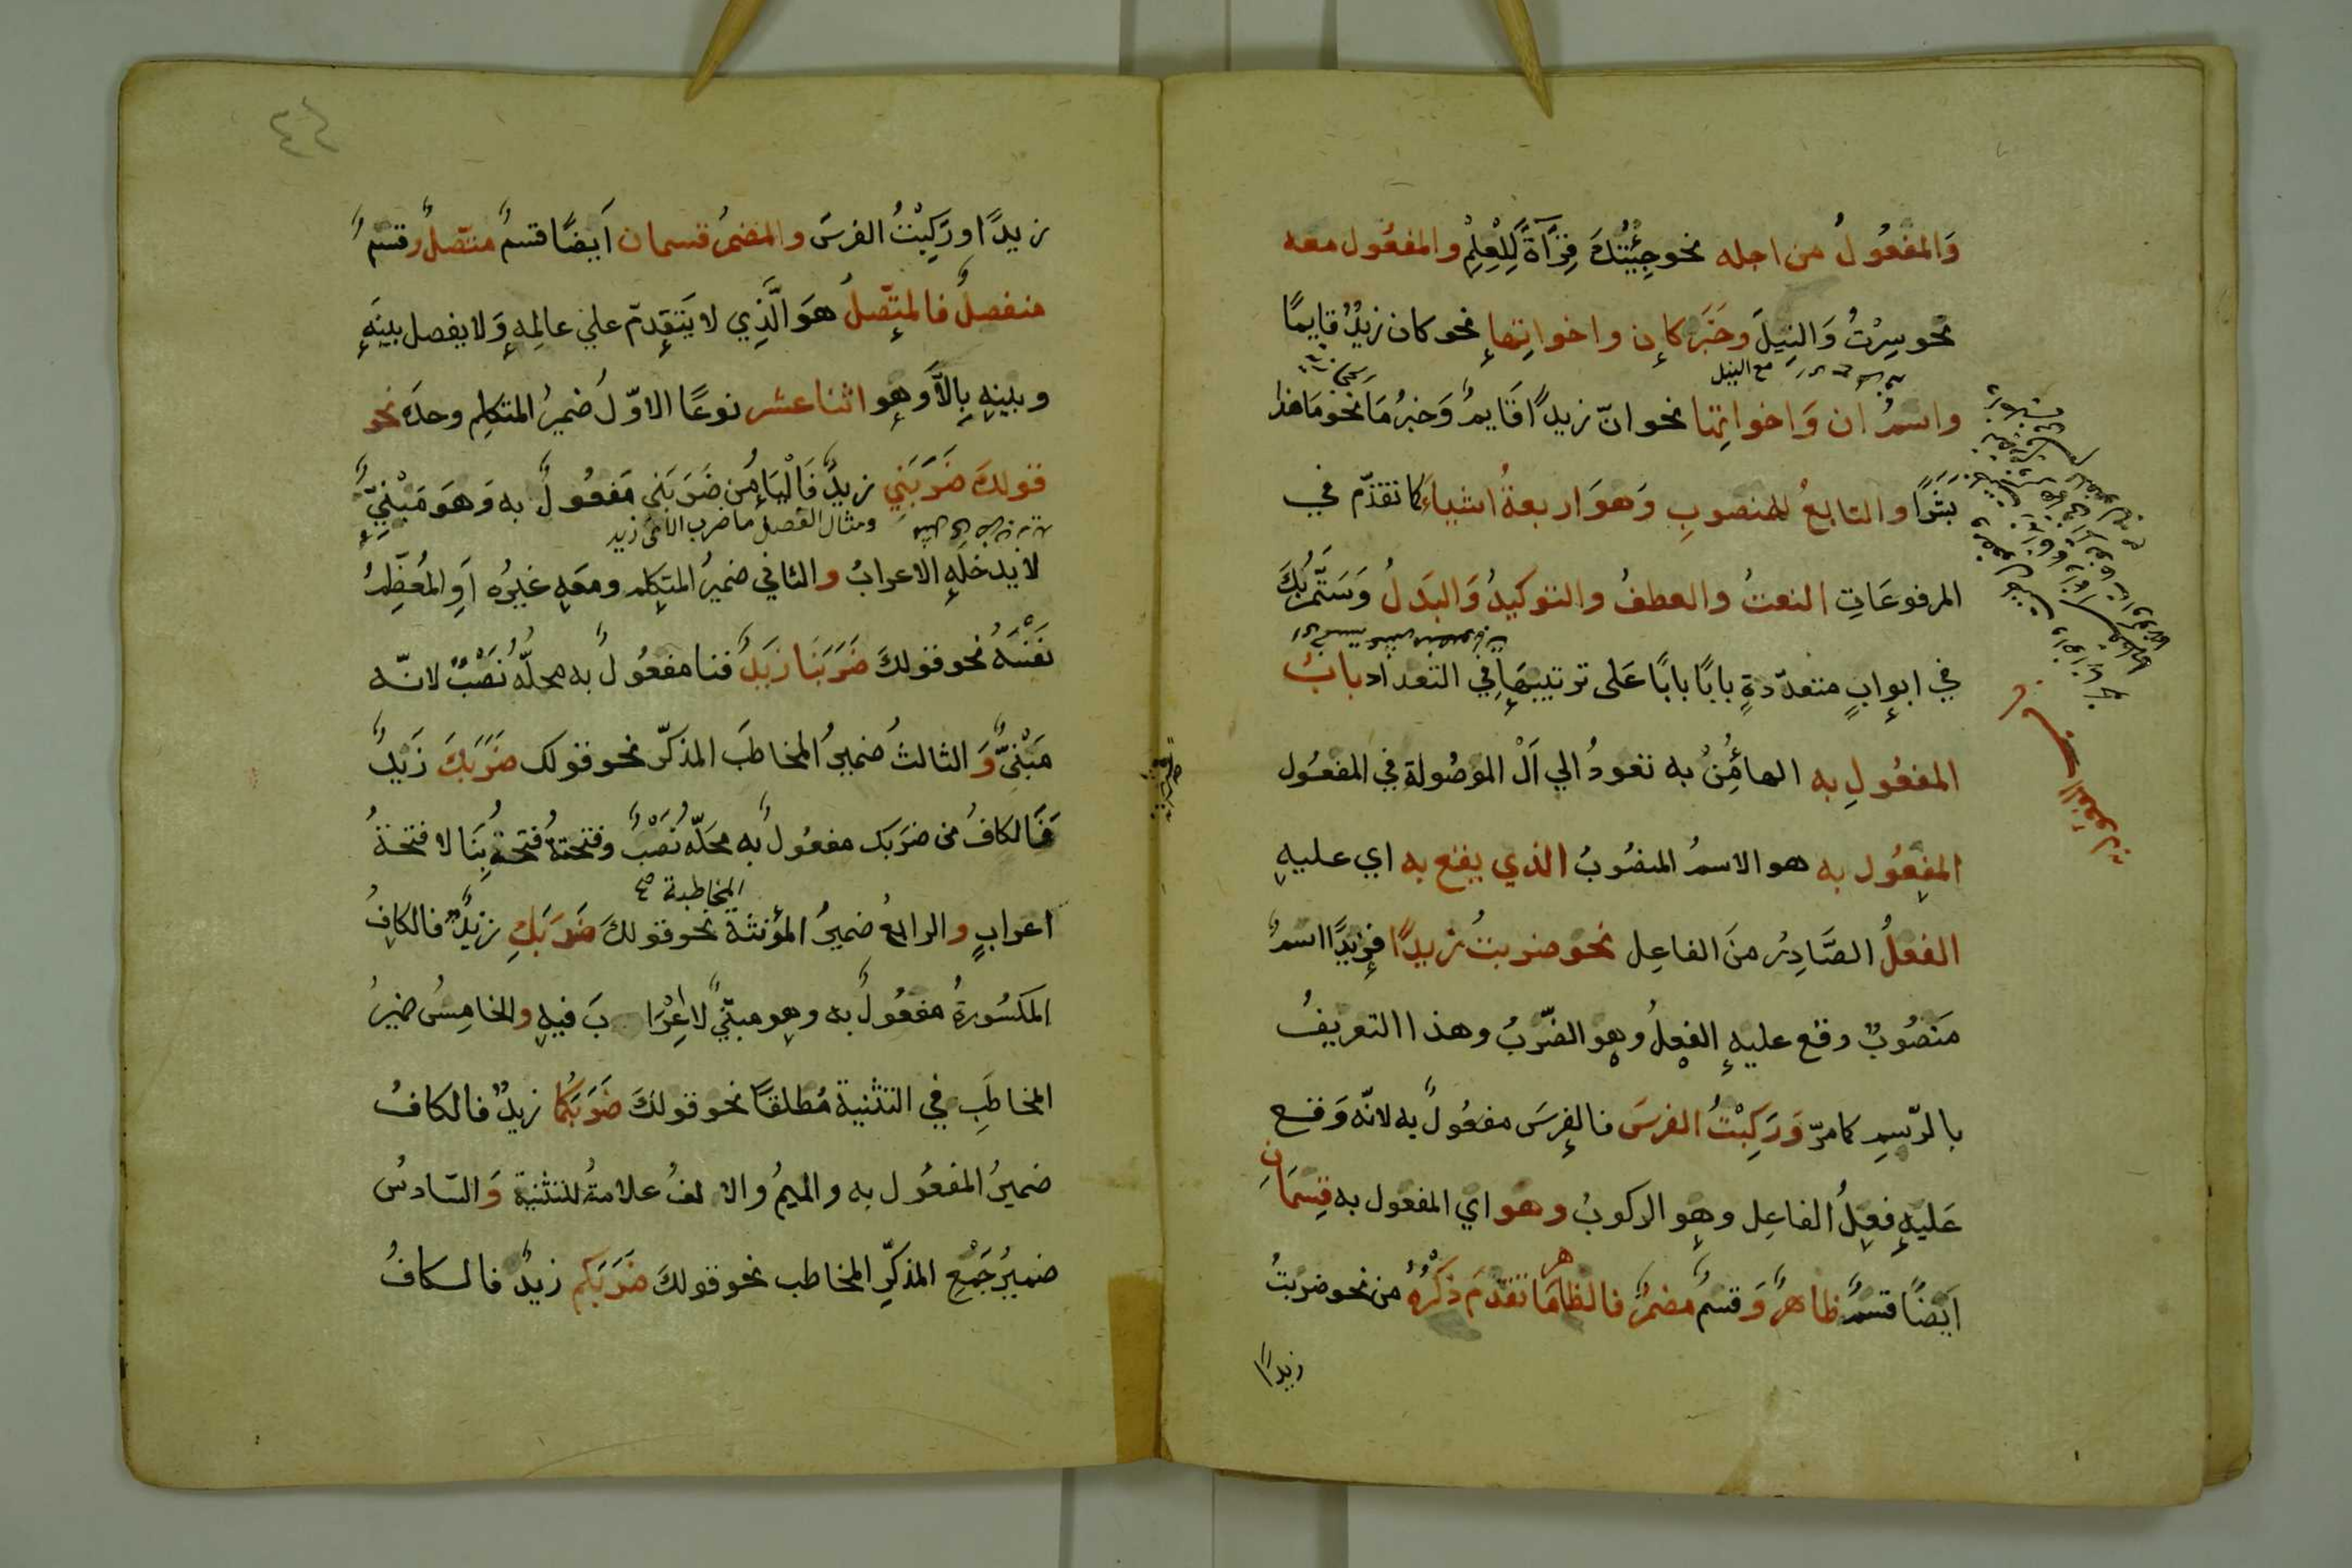 وَالمفعُولُ من اجله نحو جِئْتُكَ قِرَآةً لِلْعِلْمِ والمفعُول معه
نحو سِرْتُ وَالنِيلَ وخَبَر كان واخواتها نحو كان زيدٌ قايمًا
مع النيل
واسمُ ان وَاخواتها نحو انّ زيدًا قَايمٌ وَخبرُ مَا نحو مَا هذا
بَشَرًا والتابعُ للمنصوبِ وَهوَ اربعةُ اشياء كما تقدّم في
المرفوعَاتِ النعتُ والعطفُ والتوكيدُ وَالبَدَلُ وَسَتَمُرُّ بِكَ
في ابوابٍ متعدّدةٍ بابًا بابًا عَلى ترتيبهَا في التعداد بابُ
المفعُولِ به الهاءُ مِنْ به تعودُ الي اَلْ الموْصُولة في المفعُول
المفعُول به هو الاسمُ المنصُوبُ الذي يقع به اي عليهِ
الفعلُ الصَّادِرُ منَ الفاعِل نحو ضربتُ زيدًا فزيدًا اسمٌ
مَنصُوبٌ وقع عليهِ الفعلُ وهو الضّربُ وهذا التعريفُ
بالرّسمِ كما مرّ وَرَكِبْتُ الفرسَ فالفرسَ مفعُولٌ به لانّه وَقع
عَليهِ فِعلُ الفاعِل وهو الركوبُ وهو اي المفعول به قِسمَانِ
ايَضًا قسمٌ ظاهرٌ وَقسمٌ مضمرٌ فالظاهر مَا تقدّمَ ذكْرُهُ من نحو ضربتُ
زيدًا
زيدًا ورَكِبْتُ الفرسَ والمضمرُ قسمان اَيضًا قسمٌ متّصلٌ وقسمٌ
منفصلٌ فالمتّصلُ هوَ الَّذِي لا يَتقدمّ علي عامِلهِ وَلا يفصل بينَهِ
وبينهِ بِالاَّ وَهو اثنا عشر نوعًا الاوّلُ ضميرُ المتكلِم وحدَه نحو
قولكَ ضَرَبَنِي زيدٌ فَالْيَاءُ مِن ضَرَبَنى مَفعُولٌ به وَهوَ مَبْنِيٌّ
ومثال الفصل ما ضرب الا مى زيد
لا يدخلهِ الاعرابُ والثاني ضميرُ المتكِلم ومعَهِ غيرُه اَوِ المُعَظّمِ
نفْسَهُ نحو قولكَ ضَرَبَنا زيَدٌ فنا مفعُولٌ به محلّهُ نُصْبٌ لانّه
مَبْنىٌّ وَالثالثُ ضميرُ المخاطَبَ المذكّر نحو قولك ضَرَبَكَ زَيْدٌ
فَالكافُ من ضَرَبَك مفعُولٌ به محَلّهُ نُصْبٌ وفتحتهُ فتحةُ بِنَا لا فتحةُ
المخاطبة صح
اعرابٍ والرابعُ ضميرُ المؤنثة نحو قولكَ ضَرَبَكِ زيدٌ فالكافُ
المكسُورةُ مفعُولٌ به وهو مبنّيٌ لا اِعْرَابَ فيهِ والخامِسُ ضميرُ
المخاطَبِ في التثنية مُطلقًا نحو قولكَ ضَرَبَكُما زيدٌ فالكافُ
ضميرُ المفعُول به والميمُ والالفُ علامةُ للتثنية وَالسّادسُ
ضميرُ جَمْعِ المذكرِّ المخاطب نحو قولكَ ضَرَبَكم زيدٌ فالكافُ